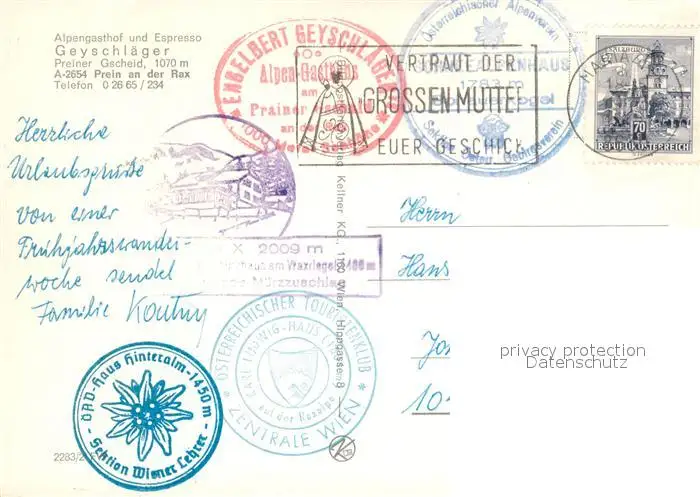 Alpengasthof und Espresso
Geyschläger
Preiner Gscheid, 1070 m
A-2654 Prein an der Rax
Telefon 0 26 65 / 234
ENGELBERT GEYSCHLÄGER
Alpen-Gasthaus
am
Prainer Gscheid
an der
Österreichischer Alpenverein
1783 m
VERTRAUT DER
GROSSEN MUTTER
EUER GESCHICK
MARIAZELL
SALZBURG
70
REPUBLIK ÖSTERREICH
Herrliche
Urlaubsgrüße
von einer
Frühjahrswander-
woche sendet
Familie Koutny
X 2009 m
am Waxriegel
Mürzzuschlag
Kellner KG., 1160 Wien, Hippgasse 8
Herrn
Hans
Jo
10
privacy protection
Datenschutz
ÖSTERREICHISCHER TOURISTENKLUB
KARL LUDWIG-HAUS
auf der Raxalpe
ZENTRALE WIEN
ÖAV-Haus Hinteralm-1450m
Sektion Wiener Lehrer
2283/2